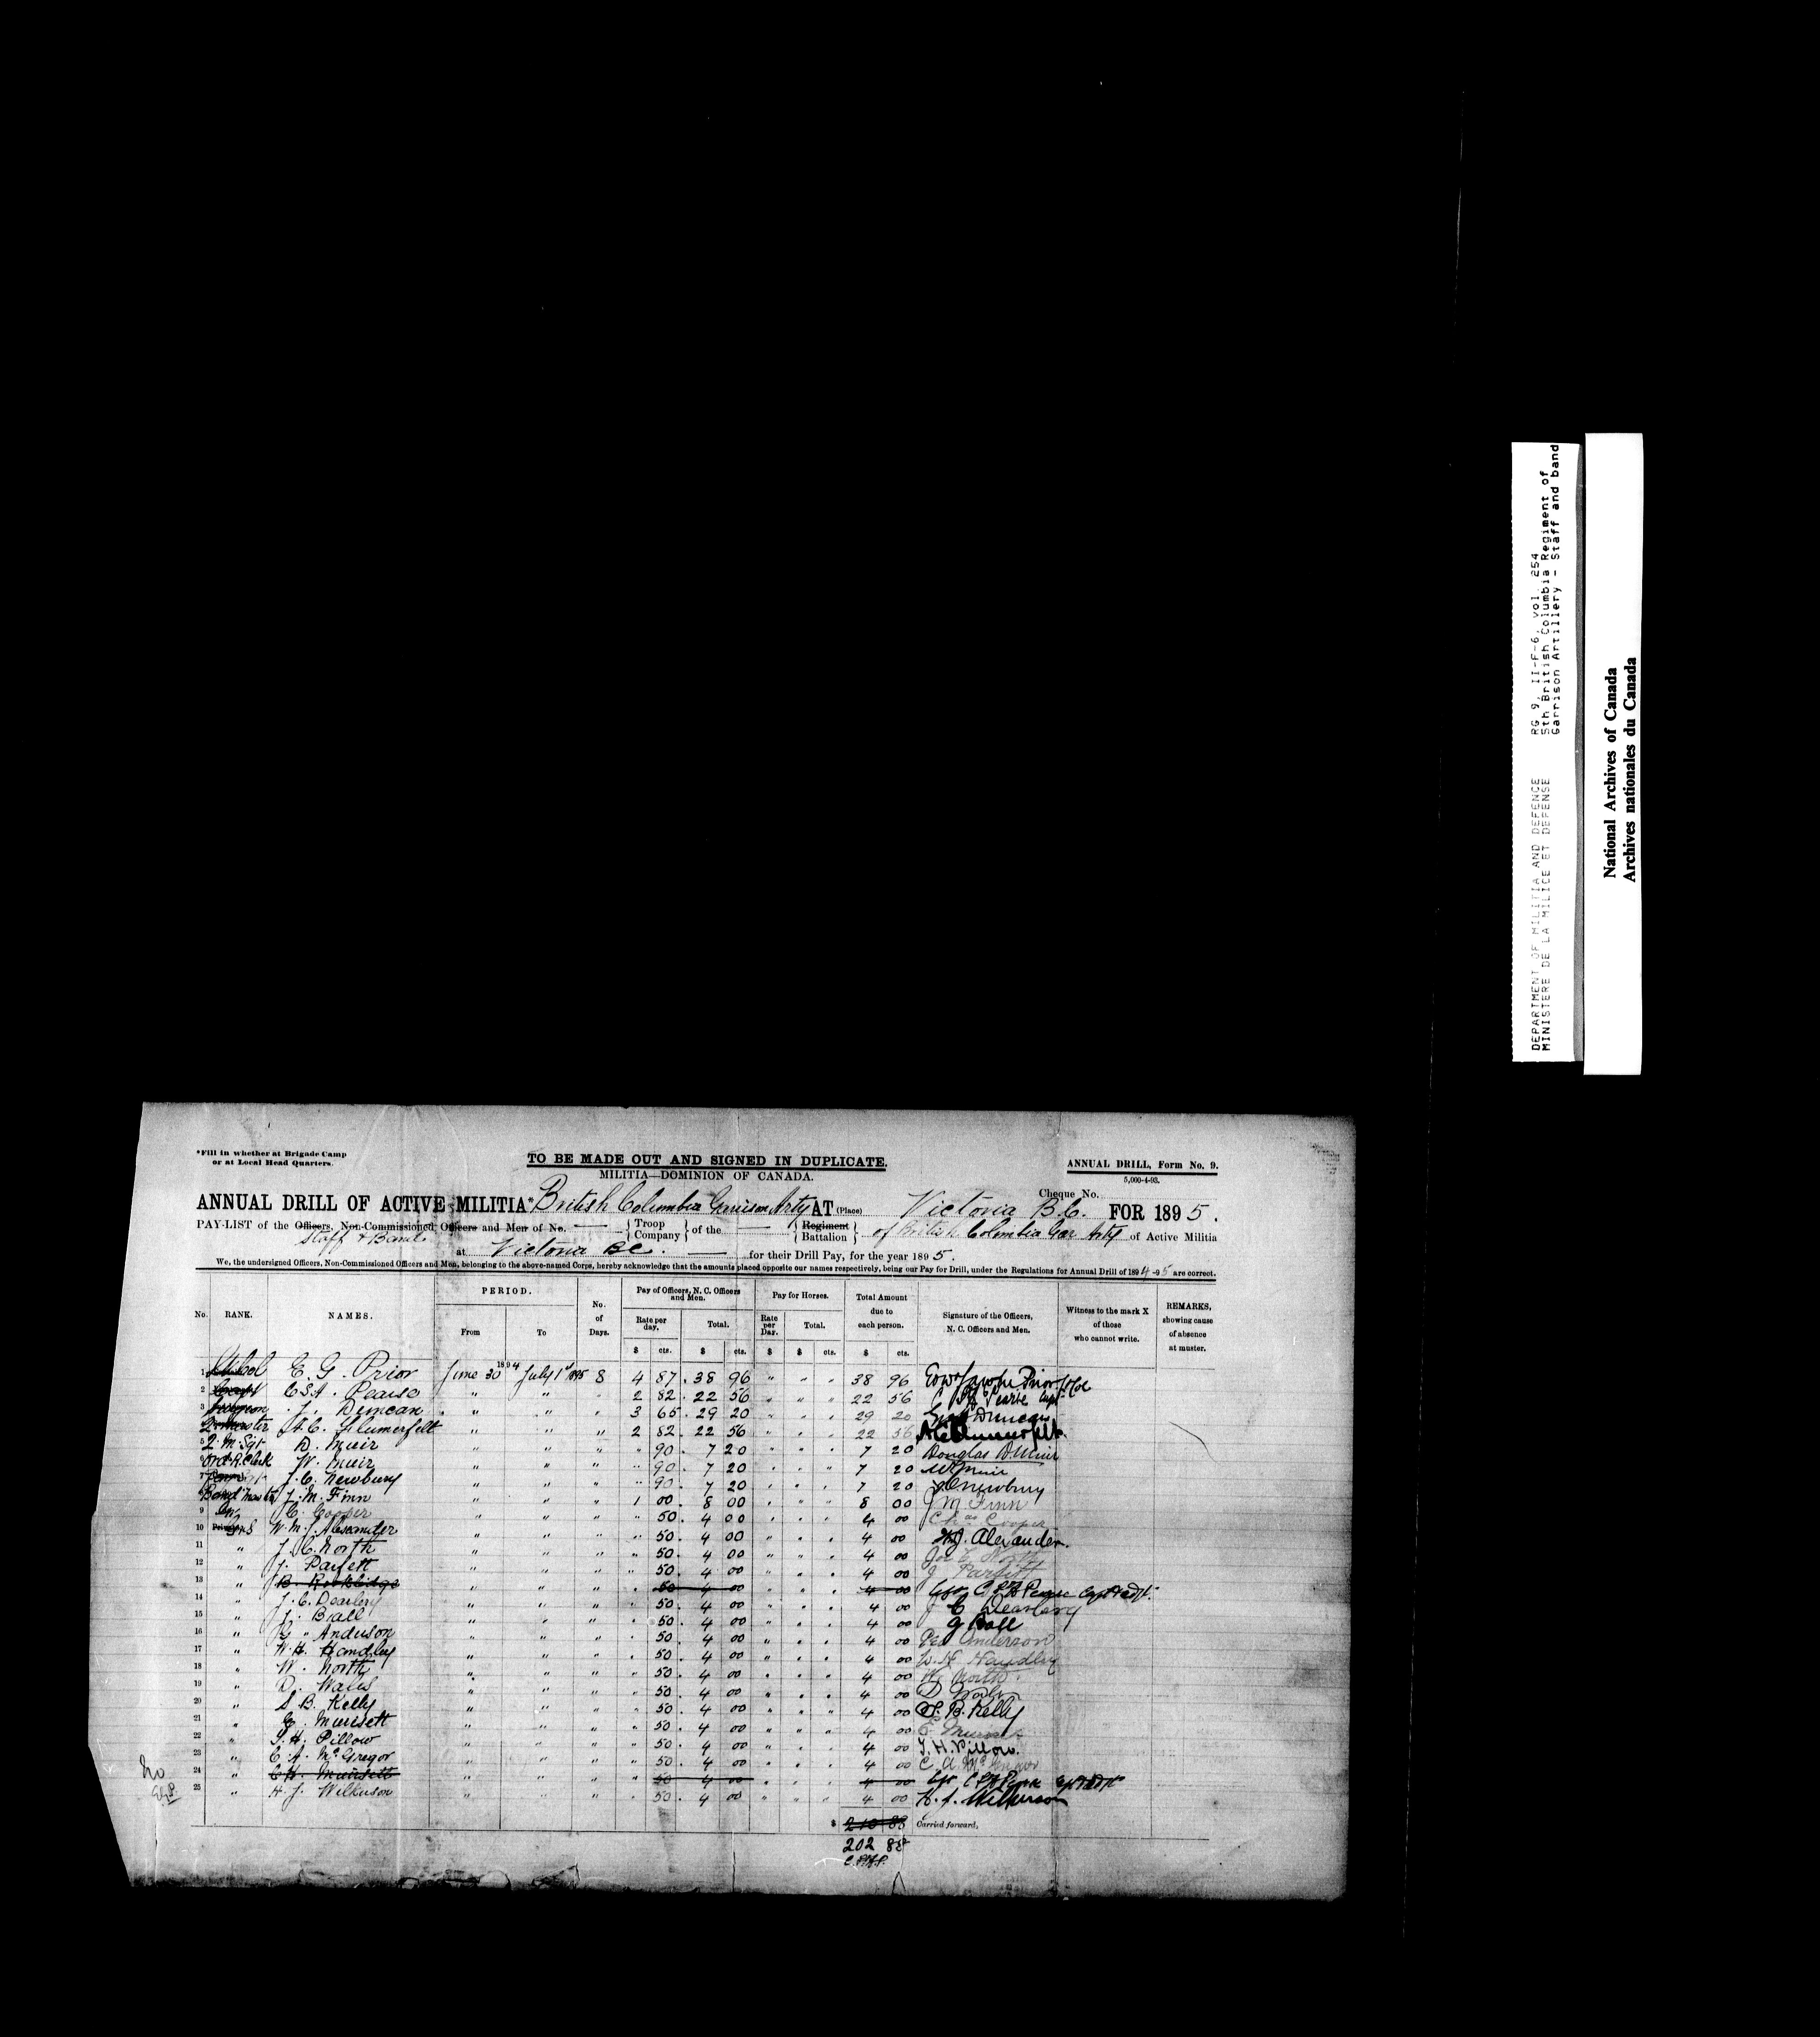 DEPARTMENT OF MILITIA AND DEFENCE
MINISTERE DE LA MILICE ET DEFENSE
RG 9, II-F-6, vol. 254
5th British Columbia Regiment of
Garrison Artillery - Staff and band
National Archives of Canada
Archives nationales du Canada
*Fill in whether at Brigade Camp
or at Local Head Quarters.
TO BE MADE OUT AND SIGNED IN DUPLICATE.
MILITIA—DOMINION OF CANADA.
ANNUAL DRILL, Form No. 9.
5,000-4-93.
Cheque No.
ANNUAL DRILL OF ACTIVE MILITIA* British Columbia Garrison Arty AT (Place) Victoria B.C. FOR 1895.
PAY-LIST of the Officers, Non-Commissioned Officers and Men of No. — { Troop Company } of the — { Regiment Battalion } of British Columbia Gar Arty of Active Militia
Staff & Band
at Victoria BC. — for their Drill Pay, for the year 1895.
We, the undersigned Officers, Non-Commissioned Officers and Men, belonging to the above-named Corps, hereby acknowledge that the amounts placed opposite our names respectively, being our Pay for Drill, under the Regulations for Annual Drill of 1894-95 are correct.
No. RANK. NAMES. PERIOD. From To No. of Days. Pay of Officers, N. C. Officers and Men. Rate per day. Total. Pay for Horses. Rate per Day. Total. Total Amount due to each person. Signature of the Officers, N. C. Officers and Men. Witness to the mark X of those who cannot write. REMARKS, showing cause of absence at muster.
$ cts. $ cts. $ $ cts. $ cts.
1 E. G. Prior June 30 1894 July 1st 1895 8 4 87 38 96 " " " 38 96 Prior
2 C S A. Pearse " " " 2 82 22 56 " " " 22 56 Pearse Capt
3 Surgeon J. Duncan " " " 3 65 29 20 " " " 29 20 Duncan
2. Master A. C. Flumerfelt " " " 2 82 22 56 " " " 22 56
5 2. M. Sgt D. Muir " " " " 90 7 20 " " " 7 20 Douglas D. Muir
Ord. R. Clerk W. Muir " " " " 90 7 20 " " " 7 20 W Muir
7 J. C. Newbury " " " " 90 7 20 " " " 7 20 Newbury
Band Master J. M. Finn " " " 1 00 8 00 " " " 8 00 J M Finn
9 C. Cooper " " " " 50 4 00 " " " 4 00 Chas Cooper
10 W. M. J. Alexander " " " " 50 4 00 " " " 4 00 W J. Alexander.
11 " J. C. North " " " " 50 4 00 " " " 4 00 North
12 " J. Parfett " " " " 50 4 00 " " " 4 00 J Parfitt
13 " B. " " " " 50 4 00 " " " 4 00 Pearse Capt
14 " J. C. Dearlery " " " " 50 4 00 " " " 4 00 J C
15 " J. Ball " " " " 50 4 00 " " " 4 00 J Ball
16 " G " Anderson " " " " 50 4 00 " " " 4 00 Geo Anderson
17 " W. H. Handley " " " " 50 4 00 " " " 4 00 W. H Handley
18 " W. North " " " " 50 4 00 " " " 4 00 W. North
19 " D. Wales " " " " 50 4 00 " " " 4 00 D
20 " S B. Kelly " " " " 50 4 00 " " " 4 00 S. B. Kelly
21 " E. Murisett " " " " 50 4 00 " " " 4 00 E
22 " T. H. Pillow " " " " 50 4 00 " " " 4 00 T. H. Pillow.
23 " C. A. McGregor " " " " 50 4 00 " " " 4 00 C. A.
24 " C H. Murisett " " " " 50 4 00 " " " 4 00
25 " H. J. Wilkerson " " " " 50 4 00 " " " 4 00 H. J. Wilkerson
No
$ 210 88 Carried forward,
202 88